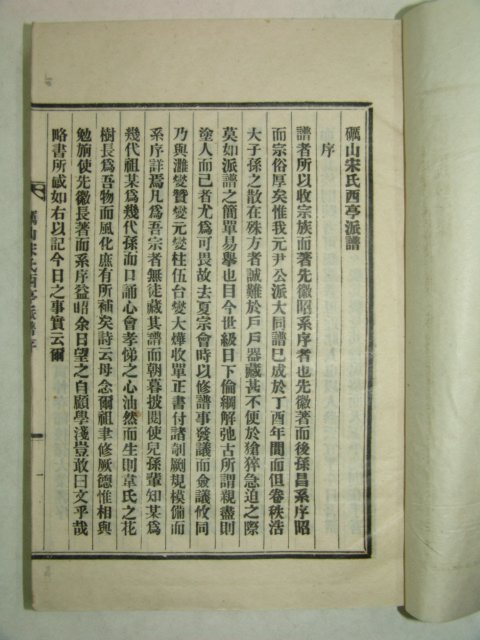 礪山宋氏西亭派譜
序
譜者所以收宗族而著先徽昭系序者也先徽著而後孫昌系序昭
而宗俗厚矣惟我元尹公派大同譜已成於丁酉年間而但卷秩浩
大子孫之散在殊方者誠難於戶戶器藏甚不便於搶猝急迫之際
莫如派譜之簡單易擧也目今世級日下倫綱解弛古所謂親盡則
塗人而已者尤爲可畏故去夏宗會時以修譜事發議而僉議攸同
乃與濰燮贊燮元燮柱伍台燮大燁收單正書付諸剞劂規模備而
系序詳焉凡爲吾宗者無徒藏其譜而朝暮披閱使兒孫輩知某爲
幾代祖某爲幾代孫而口誦心會孝悌之心油然而生則韋氏之花
樹長爲吾物而風化庶有所補矣詩云毋念爾祖聿修厥德惟相與
勉旃使先徽長著而系序益昭余日望之自顧學淺豈敢曰文乎哉
略書所感如右以記今日之事實云爾
礪山宋氏西亭派譜序
一